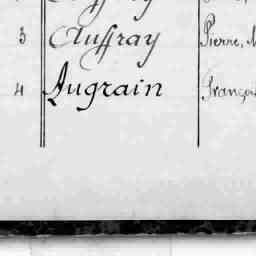 3 Auffray Pierre, M
4 Augrain Françoi